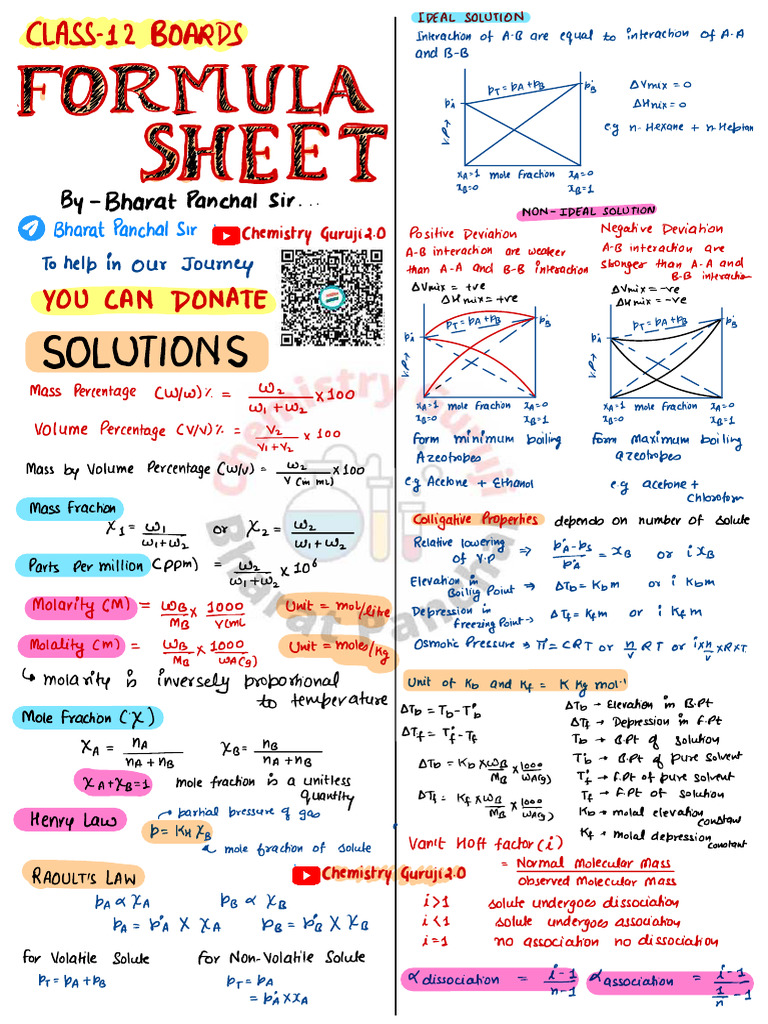 CLASS-12 BOARDS
FORMULA
SHEET
By - Bharat Panchal Sir...
Bharat Panchal Sir
Chemistry Guruji 2.0
To help in our Journey
YOU CAN DONATE
SOLUTIONS
Mass Percentage (w/w)% = w₂/(w₁+w₂) × 100
Volume Percentage (v/v)% = v₂/(v₁+v₂) × 100
Mass by Volume Percentage (w/v) = w₂/(V (in mL)) × 100
Mass Fraction
χ₁ = w₁/(w₁+w₂) or χ₂ = w₂/(w₁+w₂)
Parts Per million (ppm) = w₂/(w₁+w₂) × 10⁶
Molarity (M) = w_B/M_B × 1000/V(mL Unit = mol/litre
Molality (m) = w_B/M_B × 1000/w_A(g) Unit = moles/kg
↳ molarity is inversely proportional
to temperature
Mole Fraction (χ)
χ_A = n_A/(n_A + n_B) χ_B = n_B/(n_A + n_B)
χ_A + χ_B = 1 mole fraction is a unitless
quantity
Henry Law
→ partial pressure of gas
p = K_H χ_B
→ mole fraction of solute
RAOULT'S LAW
Chemistry Guruji 2.0
p_A ∝ χ_A p_B ∝ χ_B
p_A = p°_A × χ_A p_B = p°_B × χ_B
for Volatile Solute for Non-Volatile Solute
p_T = p_A + p_B p_T = p_A
= p°_A × χ_A
IDEAL SOLUTION
Interaction of A-B are equal to interaction of A-A
and B-B
p_T = p_A + p_B
p°_A
p°_B
V.P→
x_A=1 mole fraction x_A=0
x_B=0 x_B=1
ΔVmix = 0
ΔHmix = 0
e.g n-Hexane + n-Heptan
NON-IDEAL SOLUTION
Positive Deviation
A-B interaction are weaker
than A-A and B-B interaction
ΔVmix = +ve
ΔHmix = +ve
p_T = p_A + p_B
p°_A
p°_B
V.P→
x_A=1 mole fraction x_A=0
x_B=0 x_B=1
form minimum boiling
Azeotropes
e.g Acetone + Ethanol
Negative Deviation
A-B interaction are
stronger than A-A and
B-B interaction
ΔVmix = -ve
ΔHmix = -ve
p_T = p_A + p_B
p°_A
p°_B
V.P→
x_A=1 mole fraction x_A=0
x_B=0 x_B=1
form maximum boiling
azeotropes
e.g acetone +
Chloroform
Colligative Properties depends on number of solute
Relative lowering
of V.P ⇒ (p°_A - p_s)/p°_A = x_B or i x_B
Elevation in
Boiling Point ⇒ ΔT_b = K_b m or i K_b m
Depression in
freezing Point ⇒ ΔT_f = K_f m or i K_f m
Osmotic Pressure ⇒ π = CRT or n/v RT or i × n/v × R × T
Unit of K_b and K_f = K Kg mol⁻¹
ΔT_b = T_b - T°_b
ΔT_f = T°_f - T_f
ΔT_b = K_b × w_B/M_B × 1000/w_A(g)
ΔT_f = K_f × w_B/M_B × 1000/w_A(g)
ΔT_b → Elevation in B.Pt
ΔT_f → Depression in F.Pt
T_b → B.Pt of solution
T°_b → B.Pt of pure solvent
T°_f → f.Pt of pure solvent
T_f → f.Pt of solution
K_b → molal elevation
constant
K_f → molal depression
constant
Vanit Hoff factor (i)
= Normal Molecular Mass
Observed Molecular Mass
i>1 solute undergoes dissociation
i<1 solute undergoes association
i=1 no association no dissociation
α dissociation = (i-1)/(n-1) α association = (i-1)/(1/n - 1)
Chemistry Guruji
Bharat Panchal